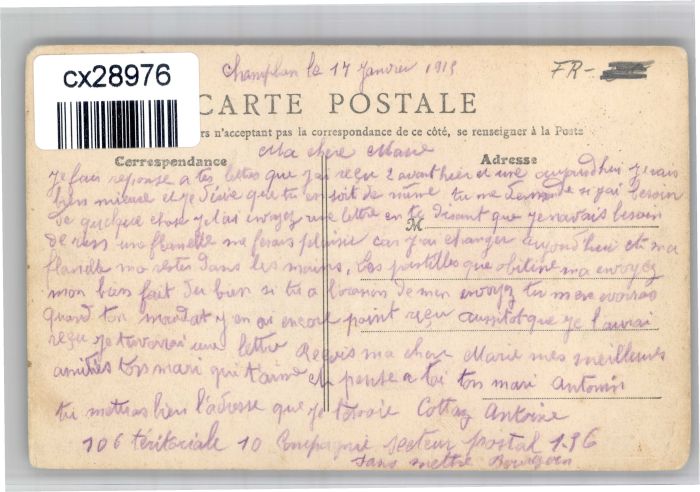 cx28976
Champlan le 17 Janvier 1915
FR-
CARTE POSTALE
rs n'acceptant pas la correspondance de ce côté, se renseigner à la Poste
Ma chere Marie
Correspondance
Adresse
je fais reponse a tes lettes que j'ai reçu 2 avant hier et une aujourdhui je vais
bien mieux et je désire que tu en soit de même tu me demande si j'ai besoin
de quelque chose je t'ai envoyez une lettre en te disant que je navais besoin
M
de rien un flanelle me ferais plaisir car j'ai changer aujourdhui et ma
flanelle ma restez dans les mains, les pastilles que ma envoyez
mon bien fait du bien si tu a locasion de men envoyez tu men
quand ton mandat y en ai encore point reçu aussitot que je l'aurai
reçu je une lettre Reçois ma chere Marie mes meilleures
amitiés ton mari qui t'aime et pense a toi ton mari Antonin
tu metras bien l'adresse que je Cottaz Antoine
106 téritoriale 10 Compagnie secteur postal 136
sans mettre Bourgoin